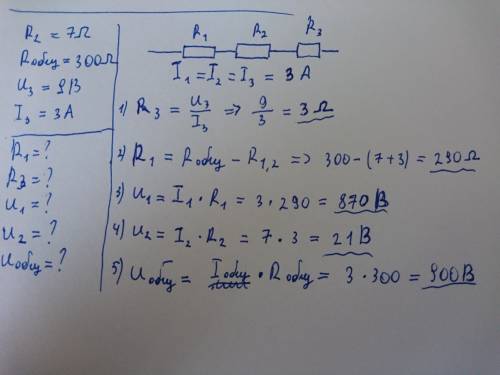 R₂ = 7Ω
Rобщ = 300Ω
U₃ = 9В
I₃ = 3А
R₁ = ?
R₃ = ?
U₁ = ?
U₂ = ?
Uобщ = ?
R₁ R₂ R₃
I₁ = I₂ = I₃ = 3А
1) R₃ = U₃/I₃ => 9/3 = 3Ω
2) R₁ = Rобщ - R₁,₂ => 300 - (7+3) = 290Ω
3) U₁ = I₁ · R₁ = 3 · 290 = 870В
4) U₂ = I₂ · R₂ = 7 · 3 = 21В
5) Uобщ = Iобщ · Rобщ = 3 · 300 = 900В